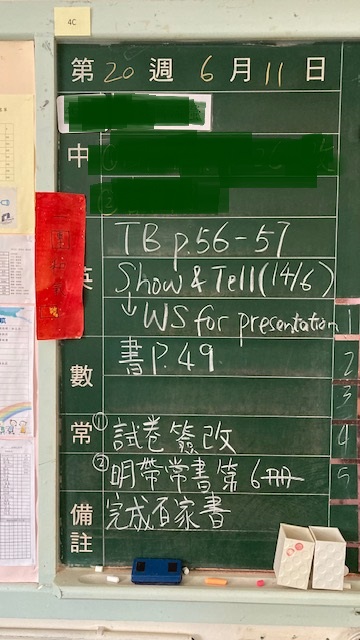 4C
第20週6月11日
中
英
TB p.56-57
Show & Tell (14/6)
↓ WS for presentation
數
書P.49.
常
① 試卷簽改
② 明帶常書第6冊
備註
完成百家書
1
2
3
4
5